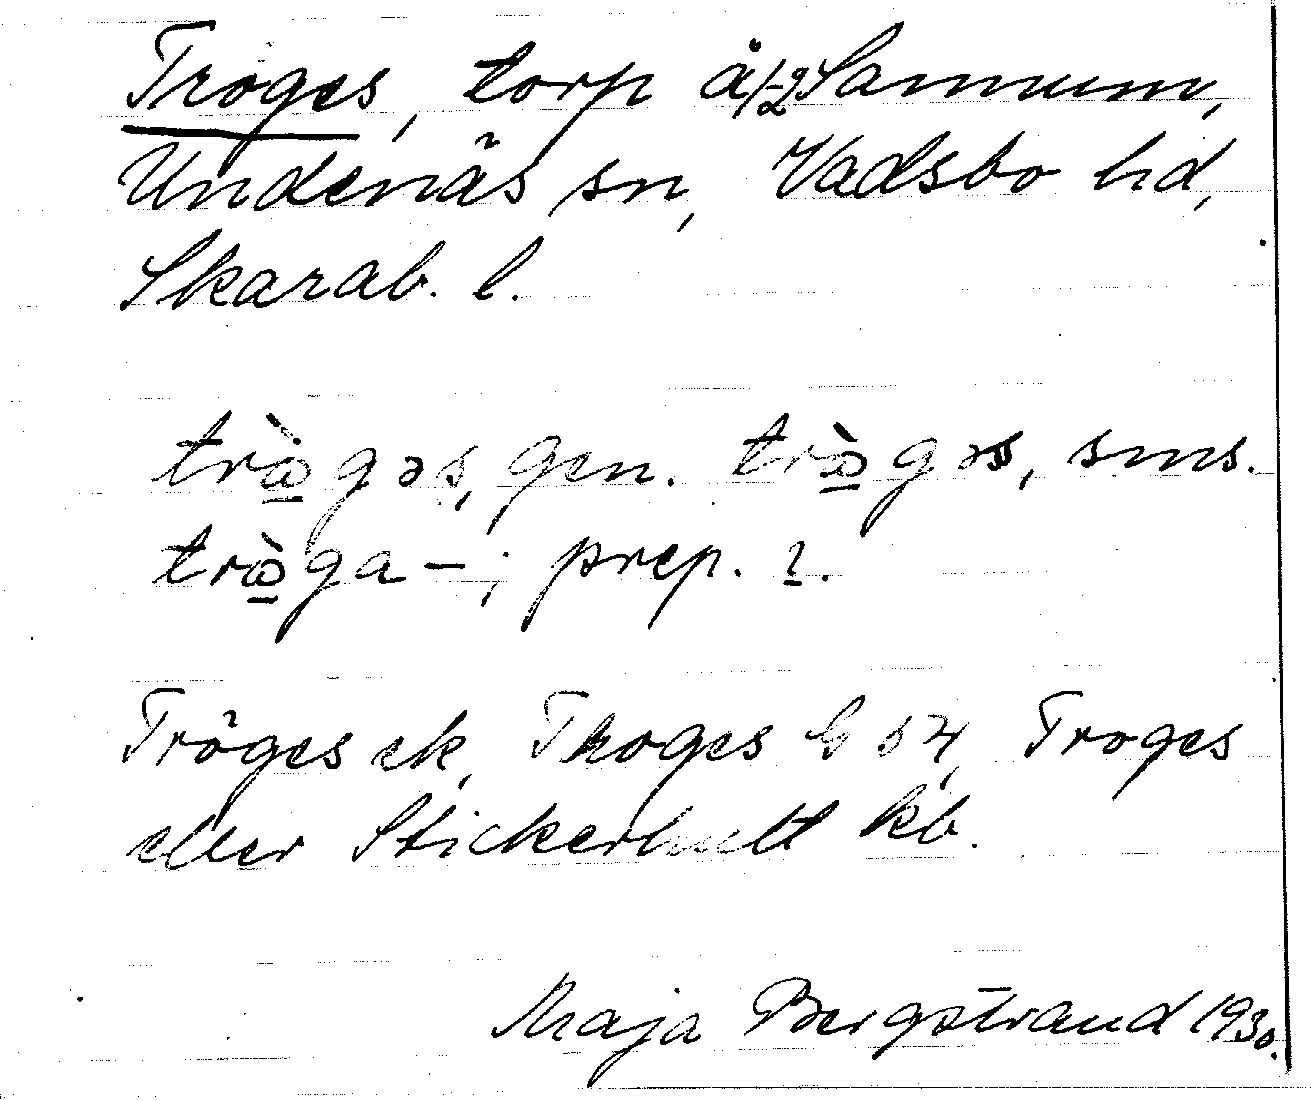 Troges, torp å 1/2 Sannum,
Undenäs sn, Vadsbo hd,
Skarab. l.
trɷ̀gəs, gen. trɷ̀gəs, sms.
trɷ̀ga-; prep. ɩ.
Tröges ek, Troges G 54, Troges
eller Stickerhult kb.
Maja Bergstrand 1930.